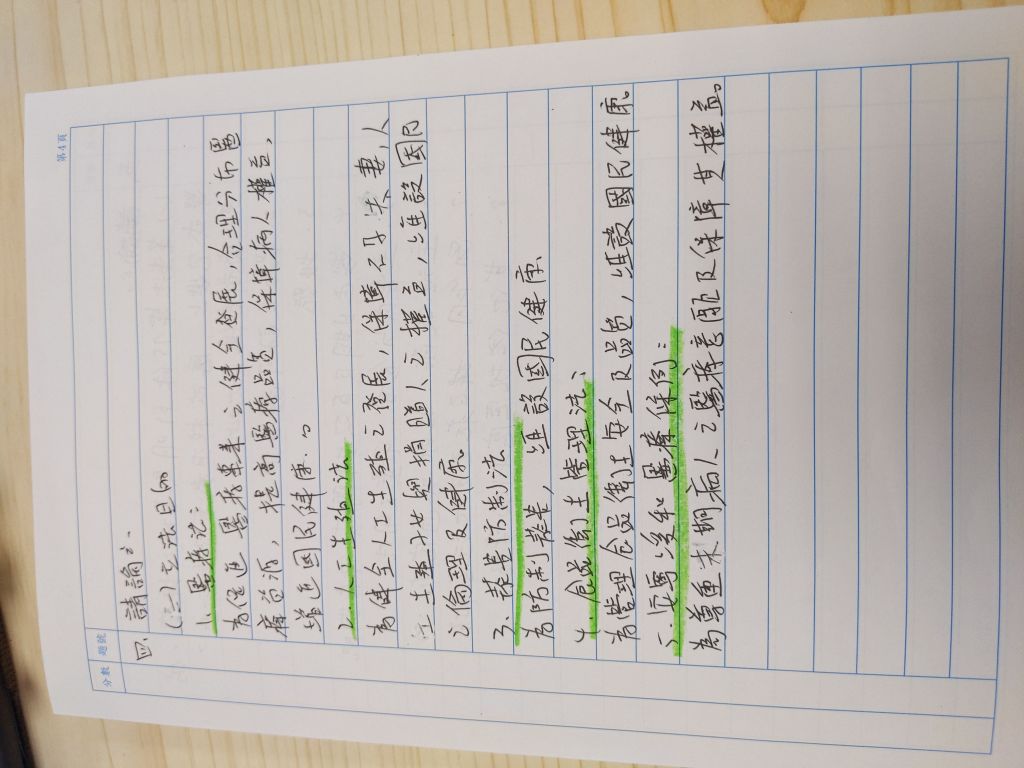 第4頁
分數 題號
四、請論述、
(二)立法目的
1. 醫療法：
為促進醫療事業之健全發展，合理分布醫
療資源，提高醫療品質，保障病人權益，
增進國民健康。
2. 人工生殖法
為健全人工生殖之發展，保障不孕夫妻，人
工生殖子女與捐贈人之權益，維設國民
之倫理及健康。
3. 菸害防制法
為防制菸害，維設國民健康。
4. 食品衛生管理法：
為管理食品衛生安全及品質，維護國民健康。
5. 安寧緩和醫療條例：
為尊重末期病人之醫療意願及保障其權益。